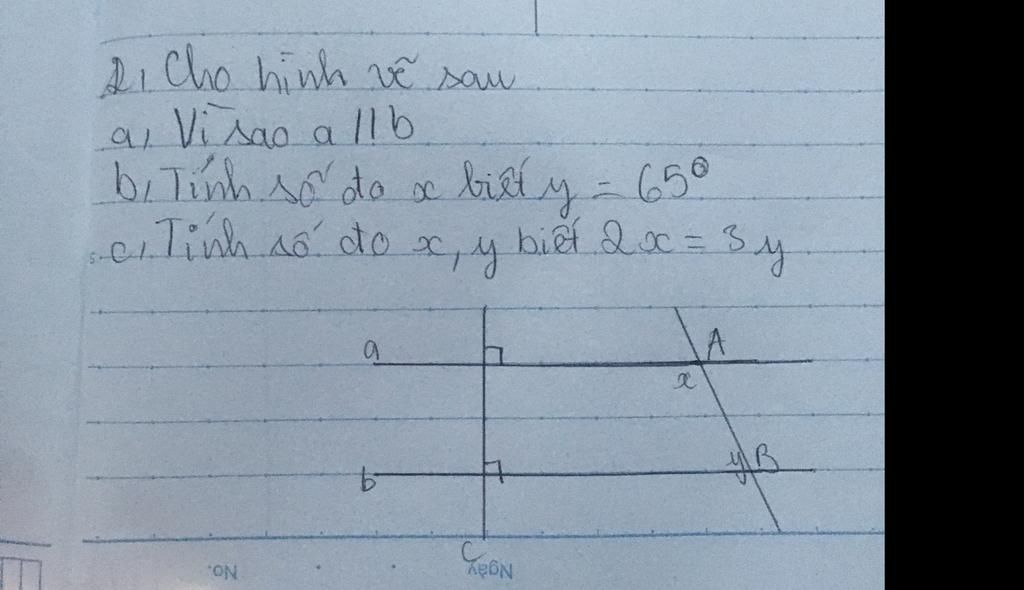 2, Cho hình vẽ sau
a, Vì sao a // b
b, Tính số đo x biết y = 65°
c, Tính số đo x, y biết 2x = 3y
a
A
x
b
y
B
c
No.
Ngày